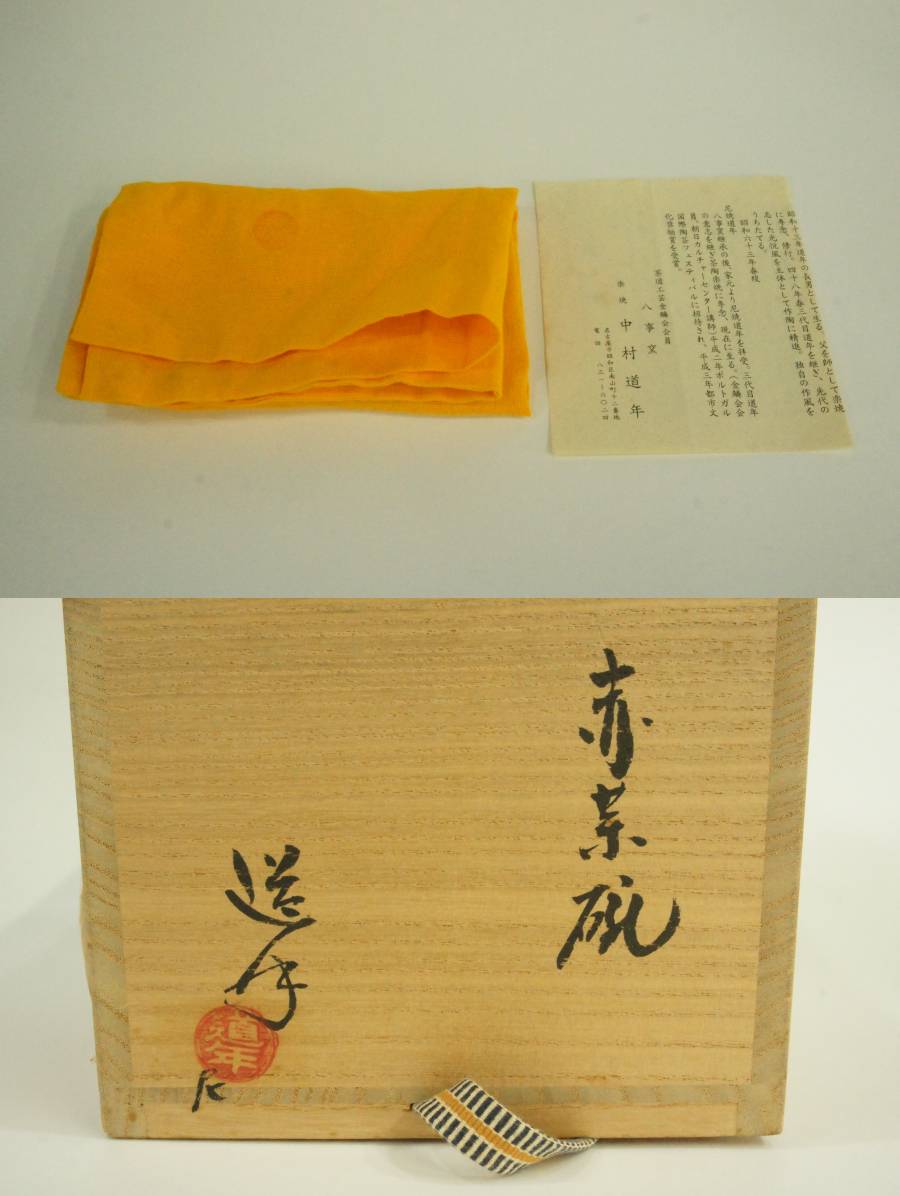 昭和十三年道年の長男として生る。父を師として楽焼
に専念、修行。四十八年春三代目道年を継ぎ、先代の
志した光悦風を主体として作陶に精進。独自の作風を
うちたてる。
昭和六十三年春歿
尼焼道年
八事窯継承の後、家元より尼焼道年を拝受。三代目道年
の意志を継ぎ茶陶楽焼に専念、現在に至る。(金鱗会会
員、朝日カルチャーセンター講師)平成二年ポルトガル
国際陶芸フェスティバルに招待され、平成三年都市文
化奨励賞を受賞。
茶道工芸金鱗会会員
八事窯
楽焼 中村道年
名古屋市昭和区南山町十二番地
電話 八三一―六〇二四
赤茶碗
道年
道年